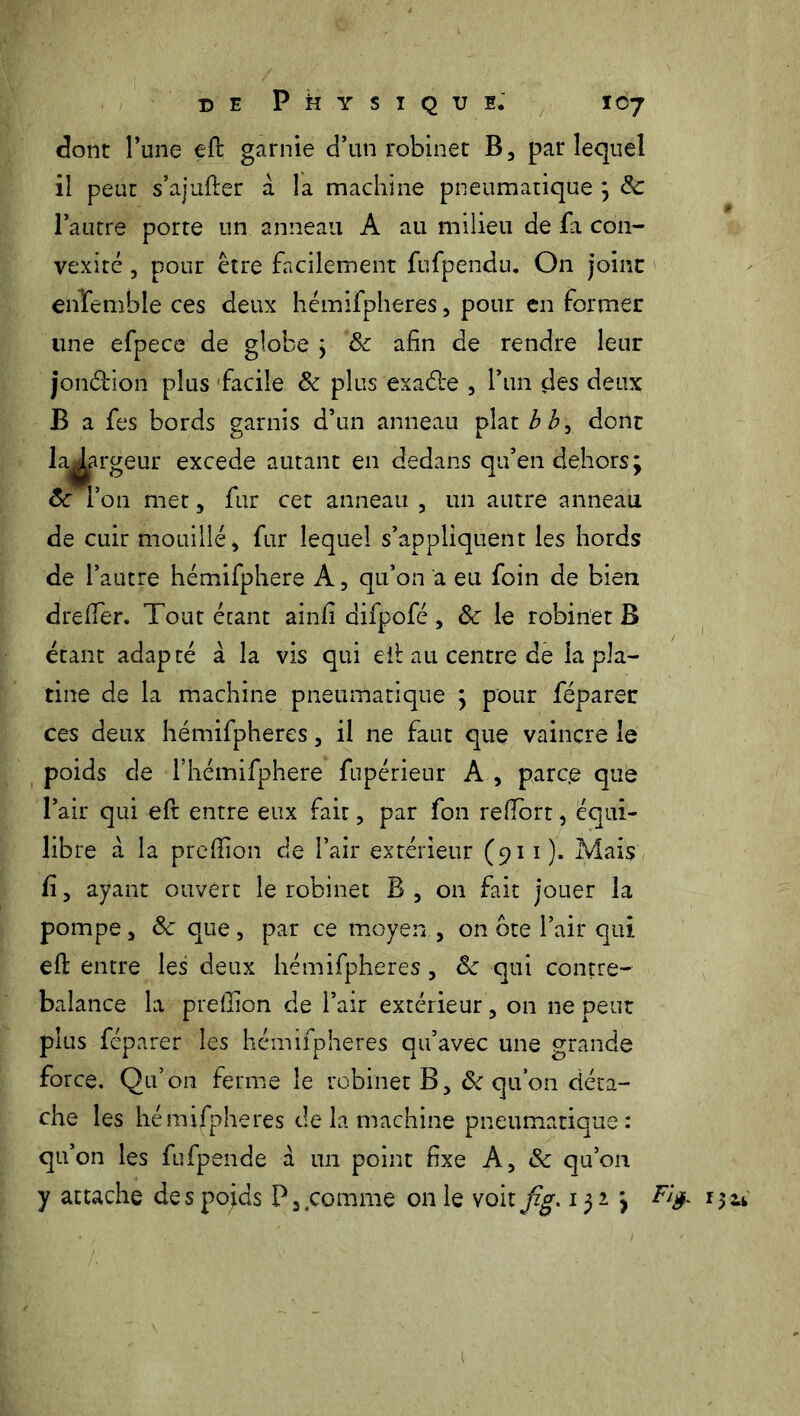 DE PHYSIQUE. 107
dont l'une eſt garnie d'un robinet B, par lequel
il peut s'ajuſter à la machine pneumatique ; &
l'autre porte un anneau A au milieu de ſa con-
vexité, pour être facilement ſuſpendu. On joint
enſemble ces deux hémiſpheres, pour en former
une eſpece de globe ; & afin de rendre leur
jonction plus facile & plus exacte, l'un des deux
B a ſes bords garnis d'un anneau plat b b, dont
la largeur excede autant en dedans qu'en dehors;
& l'on met, ſur cet anneau, un autre anneau
de cuir mouillé, ſur lequel s'appliquent les bords
de l'autre hémiſphere A, qu'on a eu ſoin de bien
dreſſer. Tout étant ainſi diſpoſé, & le robinet B
étant adapté à la vis qui eſt au centre de la pla-
tine de la machine pneumatique ; pour ſéparer
ces deux hémiſpheres, il ne faut que vaincre le
poids de l'hémiſphere ſupérieur A, parce que
l'air qui eſt entre eux fait, par ſon reſſort, équi-
libre à la preſſion de l'air extérieur (911). Mais
ſi, ayant ouvert le robinet B, on fait jouer la
pompe, & que, par ce moyen, on ôte l'air qui
eſt entre les deux hémiſpheres, & qui contre-
balance la preſſion de l'air extérieur, on ne peut
plus ſéparer les hémiſpheres qu'avec une grande
force. Qu'on ferme le robinet B, & qu'on déta-
che les hémiſpheres de la machine pneumatique :
qu'on les ſuſpende à un point fixe A, & qu'on
y attache des poids P, comme on le voit fig. 132 ; Fig. 132.